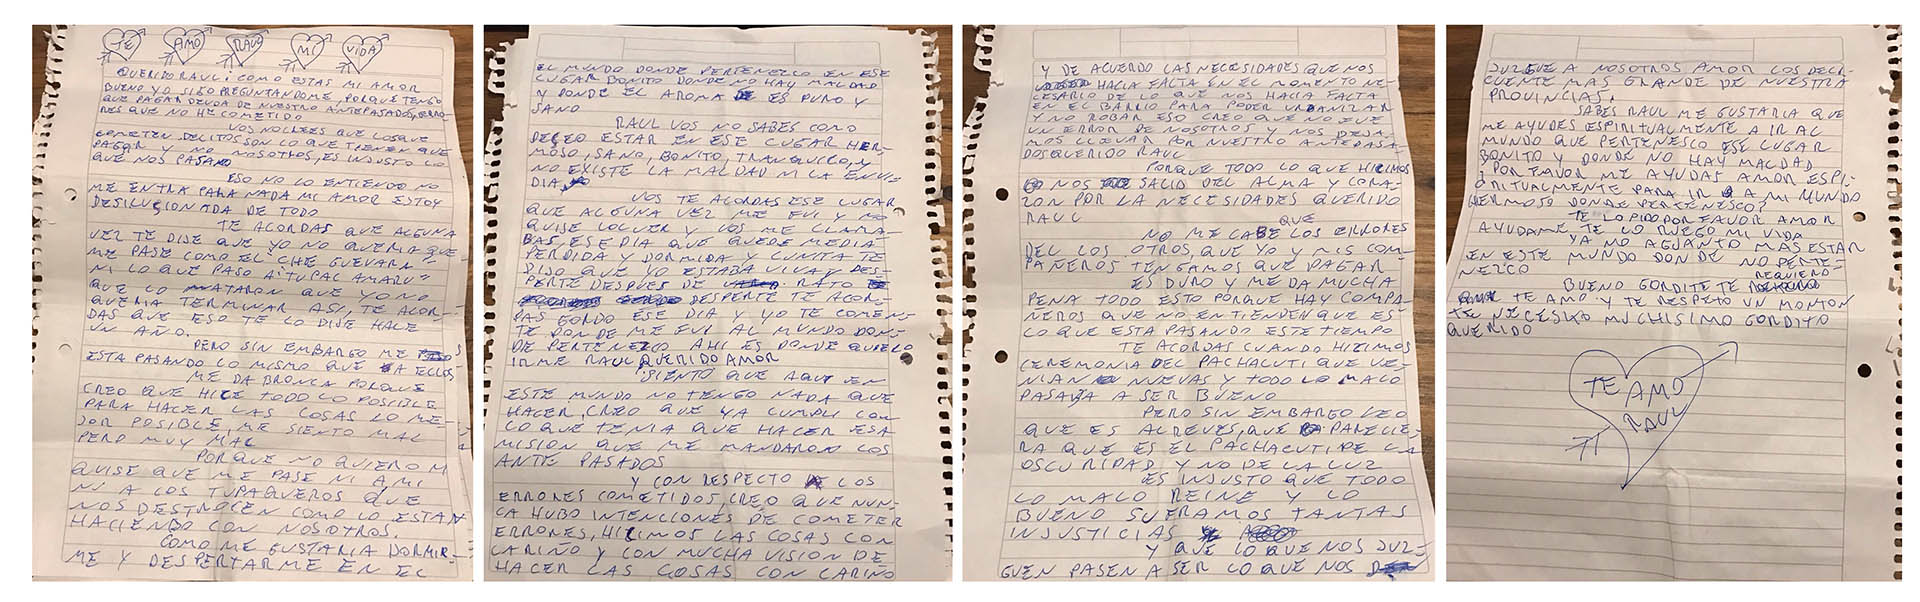 TE AMO RAUL MI VIDA
QUERIDO RAUL: COMO ESTAS MI AMOR
BUENO YO SIGO PREGUNTANDOME, PORQUE TENGO
QUE PAGAR DEUDA DE NUESTRO ANTEPASADOS, ERRO-
RES QUE NO HE COMETIDO
VOS NO CREES QUE LOS QUE
COMETEN DELITOS SON LO QUE TIENEN QUE
PAGAR Y NO NOSOTROS, ES INJUSTO LO
QUE NOS PASANO
ESO NO LO ENTIENDO NO
ME ENTRA PARA NADA MI AMOR ESTOY
DESILUCIONADA DE TODO
TE ACORDAS QUE ALGUNA
VEZ TE DIJE QUE YO NO QUERIA QUE
ME PASE COMO EL "CHE GUEVARA"
NI LO QUE PASO A "TUPAC AMARU"
QUE LO MATARON QUE YO NO
QUERIA TERMINAR ASI, TE ACOR-
DAS QUE ESO TE LO DIJE HACE
UN AÑO.
PERO SIN EMBARGO ME
ESTA PASANDO LO MISMO QUE A ELLOS
ME DA BRONCA PORQUE
CREO QUE HICE TODO LO POSIBLE
PARA HACER LAS COSAS LO ME-
JOR POSIBLE, ME SIENTO MAL
PERO MUY MAL
PORQUE NO QUIERO NI
QUISE QUE ME PASE NI A MI
NI A LOS TUPAQUEROS QUE
NOS DESTROCEN COMO LO ESTAN
HACIENDO CON NOSOTROS.
COMO ME GUSTARIA DORMIR-
ME Y DESPERTARME EN EL
EL MUNDO DONDE PERTENEZCO EN ESE
LUGAR BONITO DONDE NO HAY MALDAD
Y DONDE EL AROMA ES PURO Y
SANO
RAUL VOS NO SABES COMO
DECEO ESTAR EN ESE LUGAR HER-
MOSO, SANO, BONITO, TRANQUILO, Y
NO EXISTE LA MALDAD NI LA ENVI-
DIA
VOS TE ACORDAS ESE LUGAR
QUE ALGUNA VEZ ME FUI Y NO
QUISE VOLVER Y VOS ME LLAMA-
BAS, ESE DIA QUE QUEDE MEDIA
PERDIDA Y DORMIDA Y LUNITA TE
DIJO QUE YO ESTABA VIVA Y DES-
PERTE DESPUES DE RATO
DESPERTE TE ACOR-
DAS GORDO ESE DIA Y YO TE COMEN-
TE DONDE ME FUI AL MUNDO DON-
DE PERTENEZCO AHI ES DONDE QUIERO
IRME RAUL QUERIDO AMOR
SIENTO QUE AQUI EN
ESTE MUNDO NO TENGO NADA QUE
HACER, CREO QUE YA CUMPLI CON
LO QUE TENIA QUE HACER ESA
MISION QUE ME MANDARON LOS
ANTE PASADOS
Y CON RESPECTO A LOS
ERRORES COMETIDOS, CREO QUE NUN-
CA HUBO INTENCIONES DE COMETER
ERRORES, HICIMOS LAS COSAS CON
CARIÑO Y CON MUCHA VISION DE
HACER LAS COSAS CON CARIÑO
Y DE ACUERDO LAS NECESIDADES QUE NOS
HACIA FALTA EN EL MOMENTO NE-
CESARIO DE LO QUE NOS HACIA FALTA
EN EL BARRIO PARA PODER URBANIZAR
Y NO ROBAR ESO CREO QUE NO FUE
UN ERROR DE NOSOTROS Y NOS DEJA-
MOS LLEVAR POR NUESTRO ANTEPASA-
DOS QUERIDO RAUL
PORQUE TODO LO QUE HICIMOS
NOS SALIO DEL ALMA Y CORA-
ZON POR LA NECESIDADES QUERIDO
RAUL
NO ME CABE QUE LOS ERRORES
DEL LOS OTROS, QUE YO Y MIS COM-
PAÑEROS TENGAMOS QUE PAGAR
ES DURO Y ME DA MUCHA
PENA TODO ESTO PORQUE HAY COMPA-
ÑEROS QUE NO ENTIENDEN QUE ES
LO QUE ESTA PASANDO ESTE TIEMPO
TE ACORDAS CUANDO HICIMOS
CEREMONIA DEL PACHACUTI QUE VE-
NIAN NUEVAS Y TODO LO MALO
PASABA A SER BUENO
PERO SIN EMBARGO VEO
QUE ES ALREVES, QUE PARECIE-
RA QUE ES EL PACHACUTI DE LA
OSCURIDAD Y NO DE LA LUZ
ES INJUSTO QUE TODO
LO MALO REINE Y LO
BUENO SUFRAMOS TANTAS
INJUSTICIAS
Y QUE LO QUE NOS JUZ-
GUEN PASEN A SER LO QUE NOS
JUZGUE A NOSOTROS AMOR LOS DELI-
CUENTE MAS GRANDE DE NUESTRA
PROVINCIAS.
SABES RAUL ME GUSTARIA QUE
ME AYUDES ESPIRITUALMENTE A IR AL
MUNDO QUE PERTENESCO ESE LUGAR
BONITO Y DONDE NO HAY MALDAD
¿POR FAVOR ME AYUDAS AMOR ESPI-
RITUALMENTE PARA IR A MI MUNDO
HERMOSO DONDE PERTENESCO?
TE LO PIDO POR FAVOR AMOR
AYUDAME TE LO RUEGO MI VIDA
YA NO AGUANTO MAS ESTAR
EN ESTE MUNDO DONDE NO PERTE-
NEZCO
BUENO GORDITE TE REQUIERO
TE AMO Y TE RESPETO UN MONTON
TE NECESITO MUCHISIMO GORDITO
QUERIDO
TE AMO
RAUL